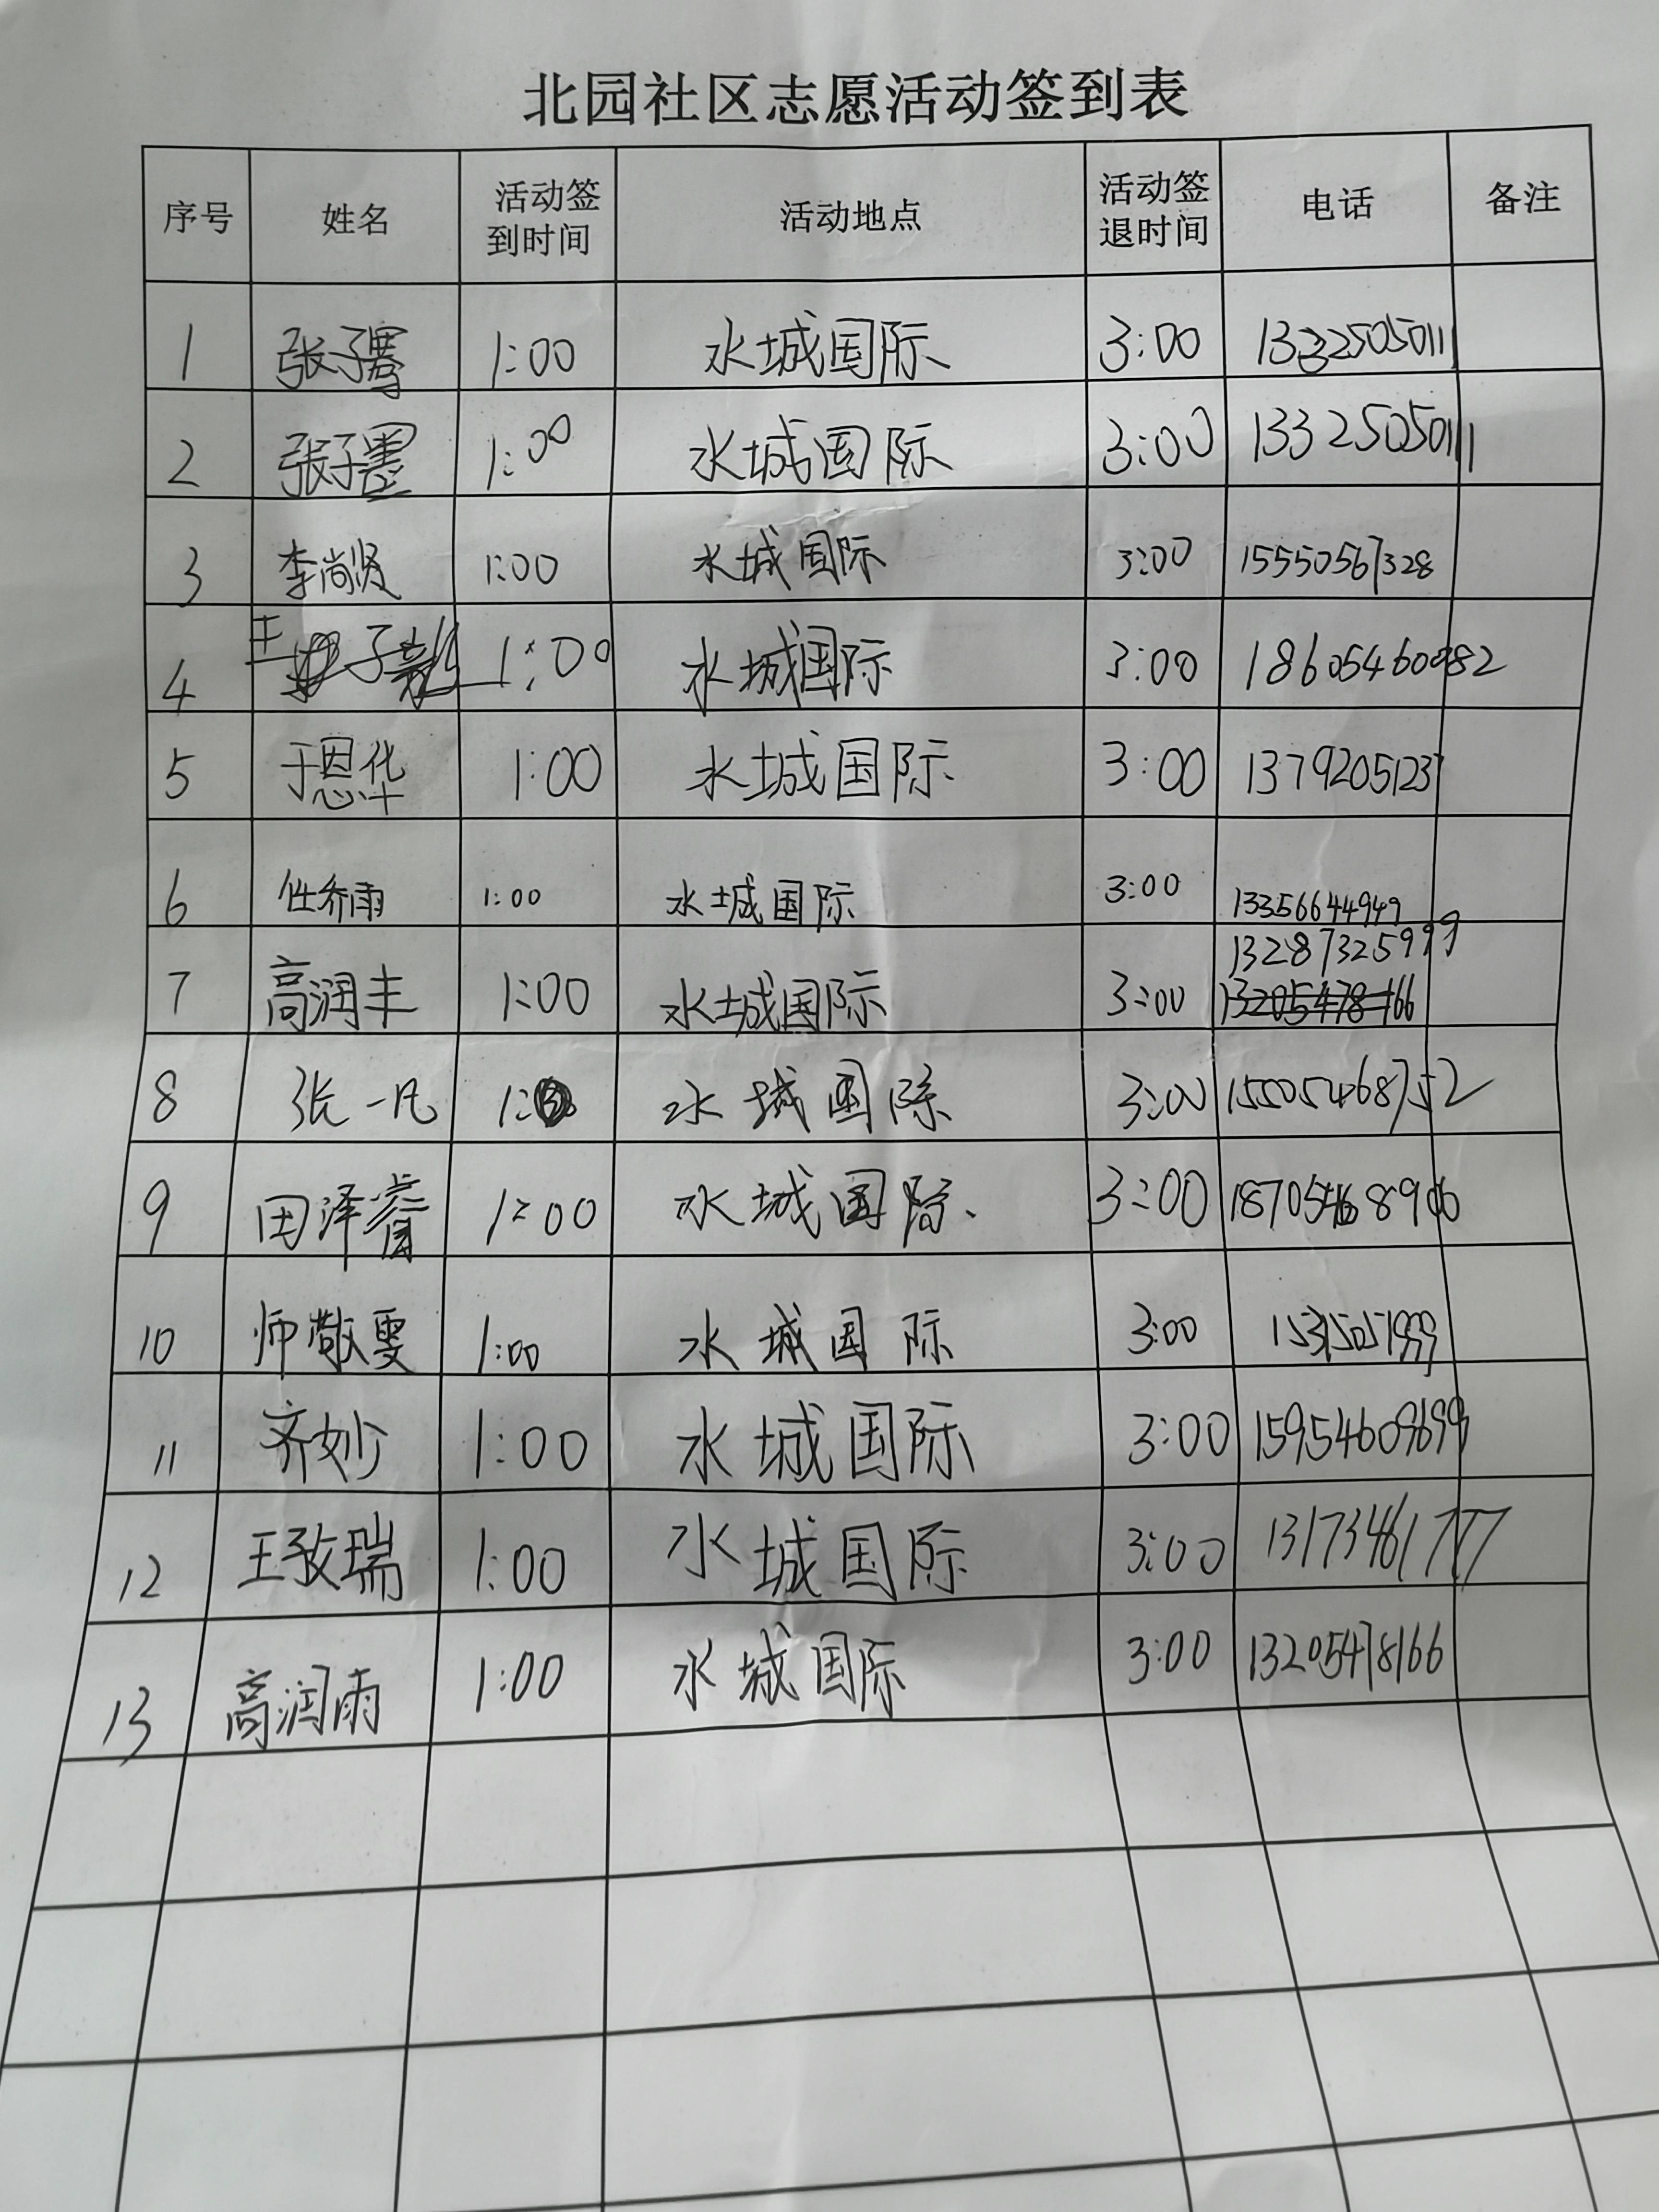 北园社区志愿活动签到表
序号 姓名 活动签到时间 活动地点 活动签退时间 电话 备注
1 张子骞 1:00 水城国际 3:00
2 张子墨 1:00 水城国际 3:00 13325050111
3 李尚贤 1:00 水城国际 3:00 15550567328
4 王子 1:00 水城国际 3:00 18605460982
5 于恩华 1:00 水城国际 3:00 13792051237
6 任乔雨 1:00 水城国际 3:00 13356644949
13287325999
7 高润丰 1:00 水城国际 3:00 13205478166
8 张一凡 1:00 水城国际 3:00 15505468752
9 田泽睿 1:00 水城国际 3:00
10 师敬雯 1:00 水城国际 3:00 15315051999
11 齐妙 1:00 水城国际 3:00 15954609699
12 王孜瑞 1:00 水城国际 3:00 13173461777
13 高润雨 1:00 水城国际 3:00 13205478166